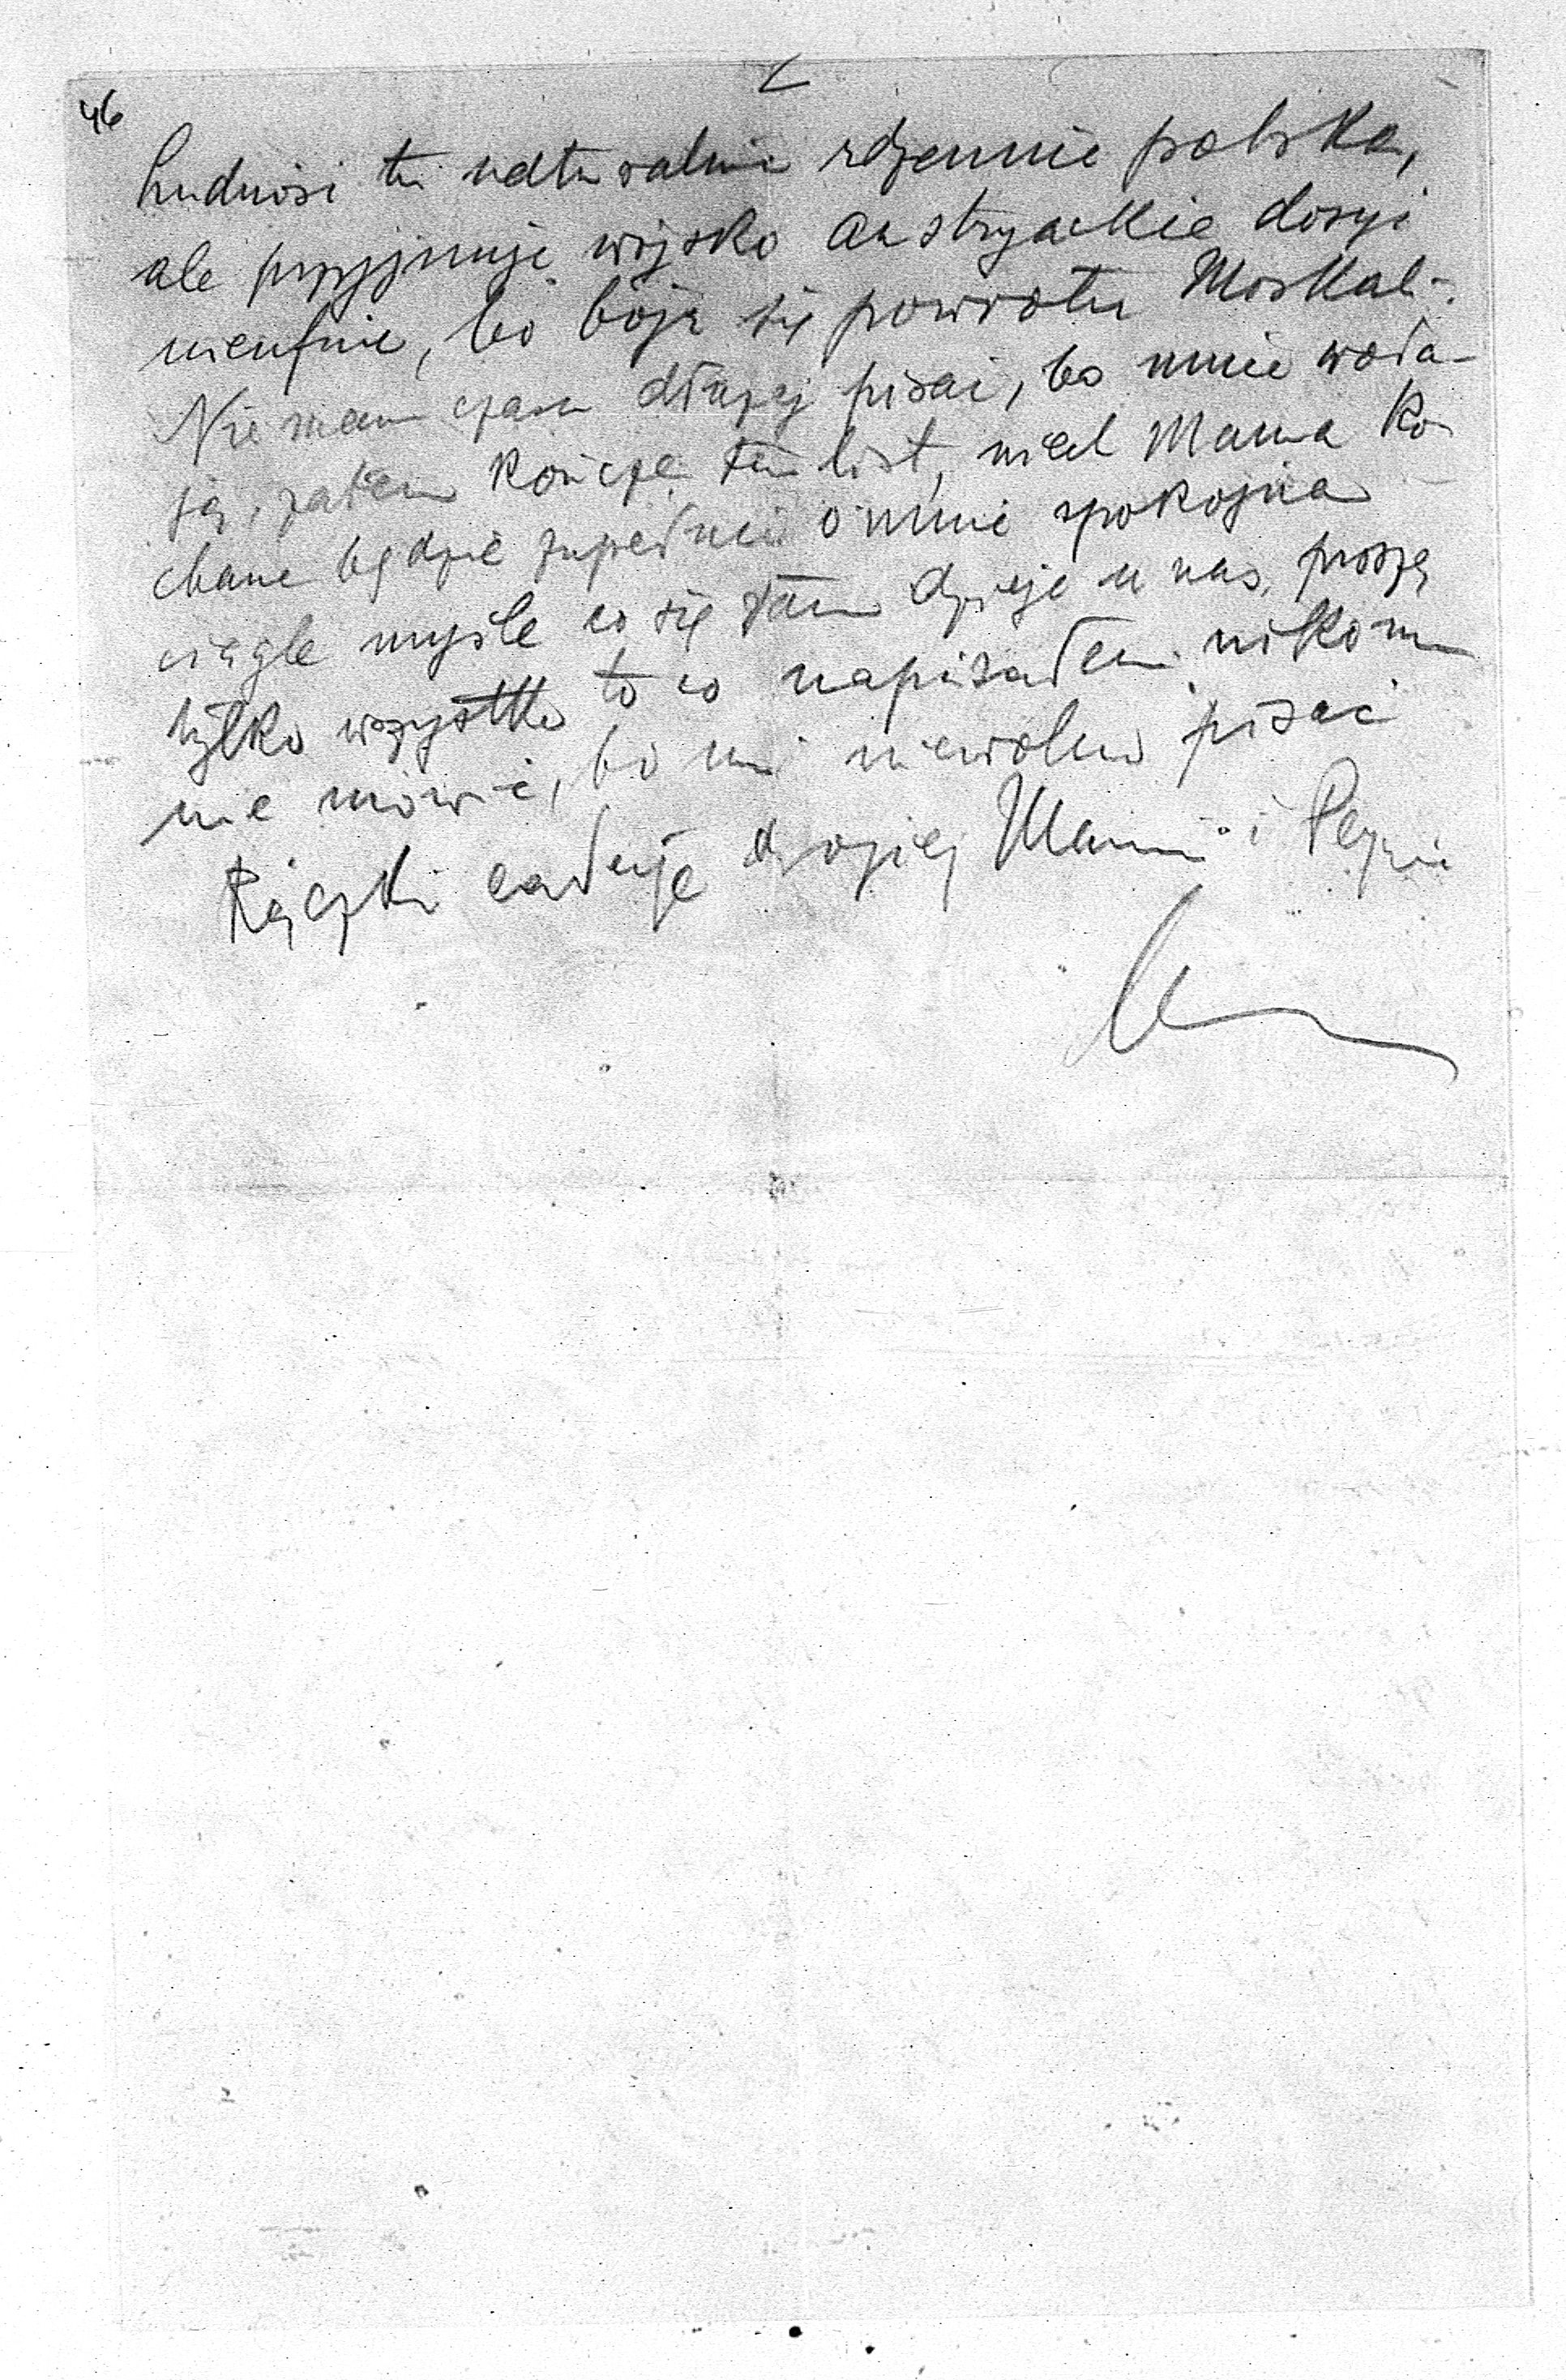 46
Ludność tu naturalnie rdzennie polska,
ale przyjmuje wojsko austryackie dosyć
nieufnie, bo boją się powrotu Moskali.
Nie mam czasu dłużej pisać, bo mnie woła-
ją, zatem kończę ten list, niech Mama ko-
chana będzie zupełnie o mnie spokojna
ciągle myślę co się tam dzieje u nas, proszę
tylko wszystko to co napisałem nikomu
nie mówić, bo mi niewolno pisać
Rączki całuję drogiej Mamie i